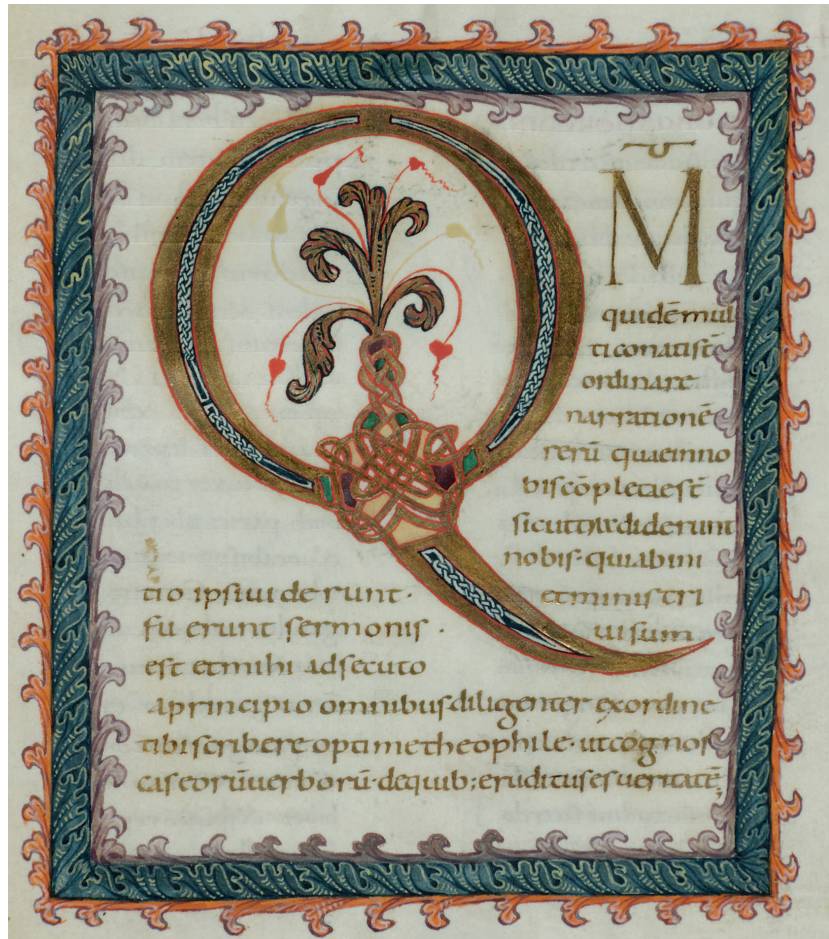 QM̄
quidē mul
ti conati st̄
ordinare
narrationē
rerū quae inno
bis cōpletae st̄
sicut tradiderunt
nobis· qui ab ini
tio ipsi uiderunt· et ministri
fuerunt sermonis· uisum
est et mihi adsecuto
a principio omnibus diligenter ex ordine
tibi scribere optime theophile· ut cognos
cas eorū uerborū· de quib; eruditus es ueritatē;